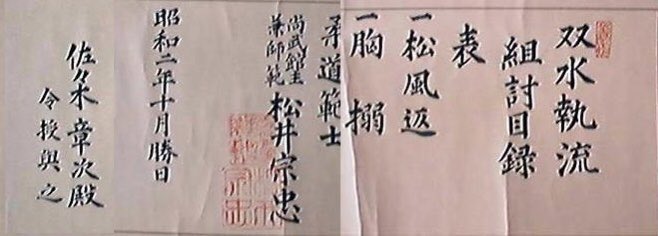 双水執流
組討目録
表
一松風返
一胸搦
柔道範士
尚武館主
兼師範
松井宗忠
昭和二年十月勝日
佐々木章次殿
令授與之